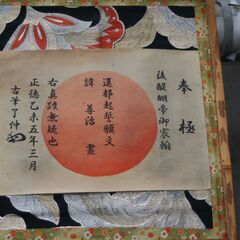 奉極
後醍醐帝御宸翰
還都起誓願文
諱 尊治 畫
右真蹟無疑也
正德乙未五年三月
古筆了仲